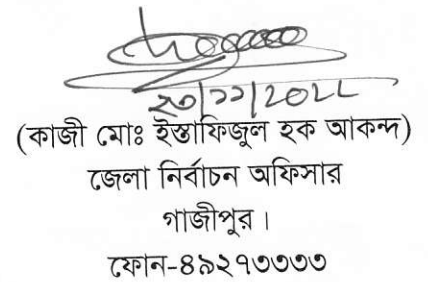 ২০/১১/২০২২
(কাজী মোঃ ইস্তাফিজুল হক আকন্দ)
জেলা নির্বাচন অফিসার
গাজীপুর।
ফোন-৪৯২৭৩৩৩৩